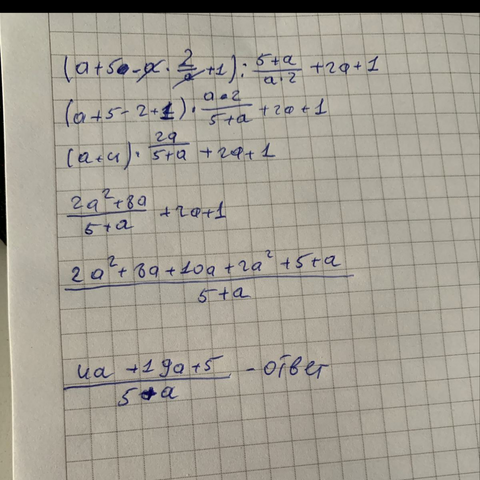 (a+5-a·2/a+1):(5+a)/(a·2)+2a+1
(a+5-2+1)·(a·2)/(5+a)+2a+1
(a+4)·2a/(5+a)+2a+1
(2a²+8a)/(5+a)+2a+1
(2a²+8a+10a+2a²+5+a)/(5+a)
(4a+19a+5)/(5+a) - ответ